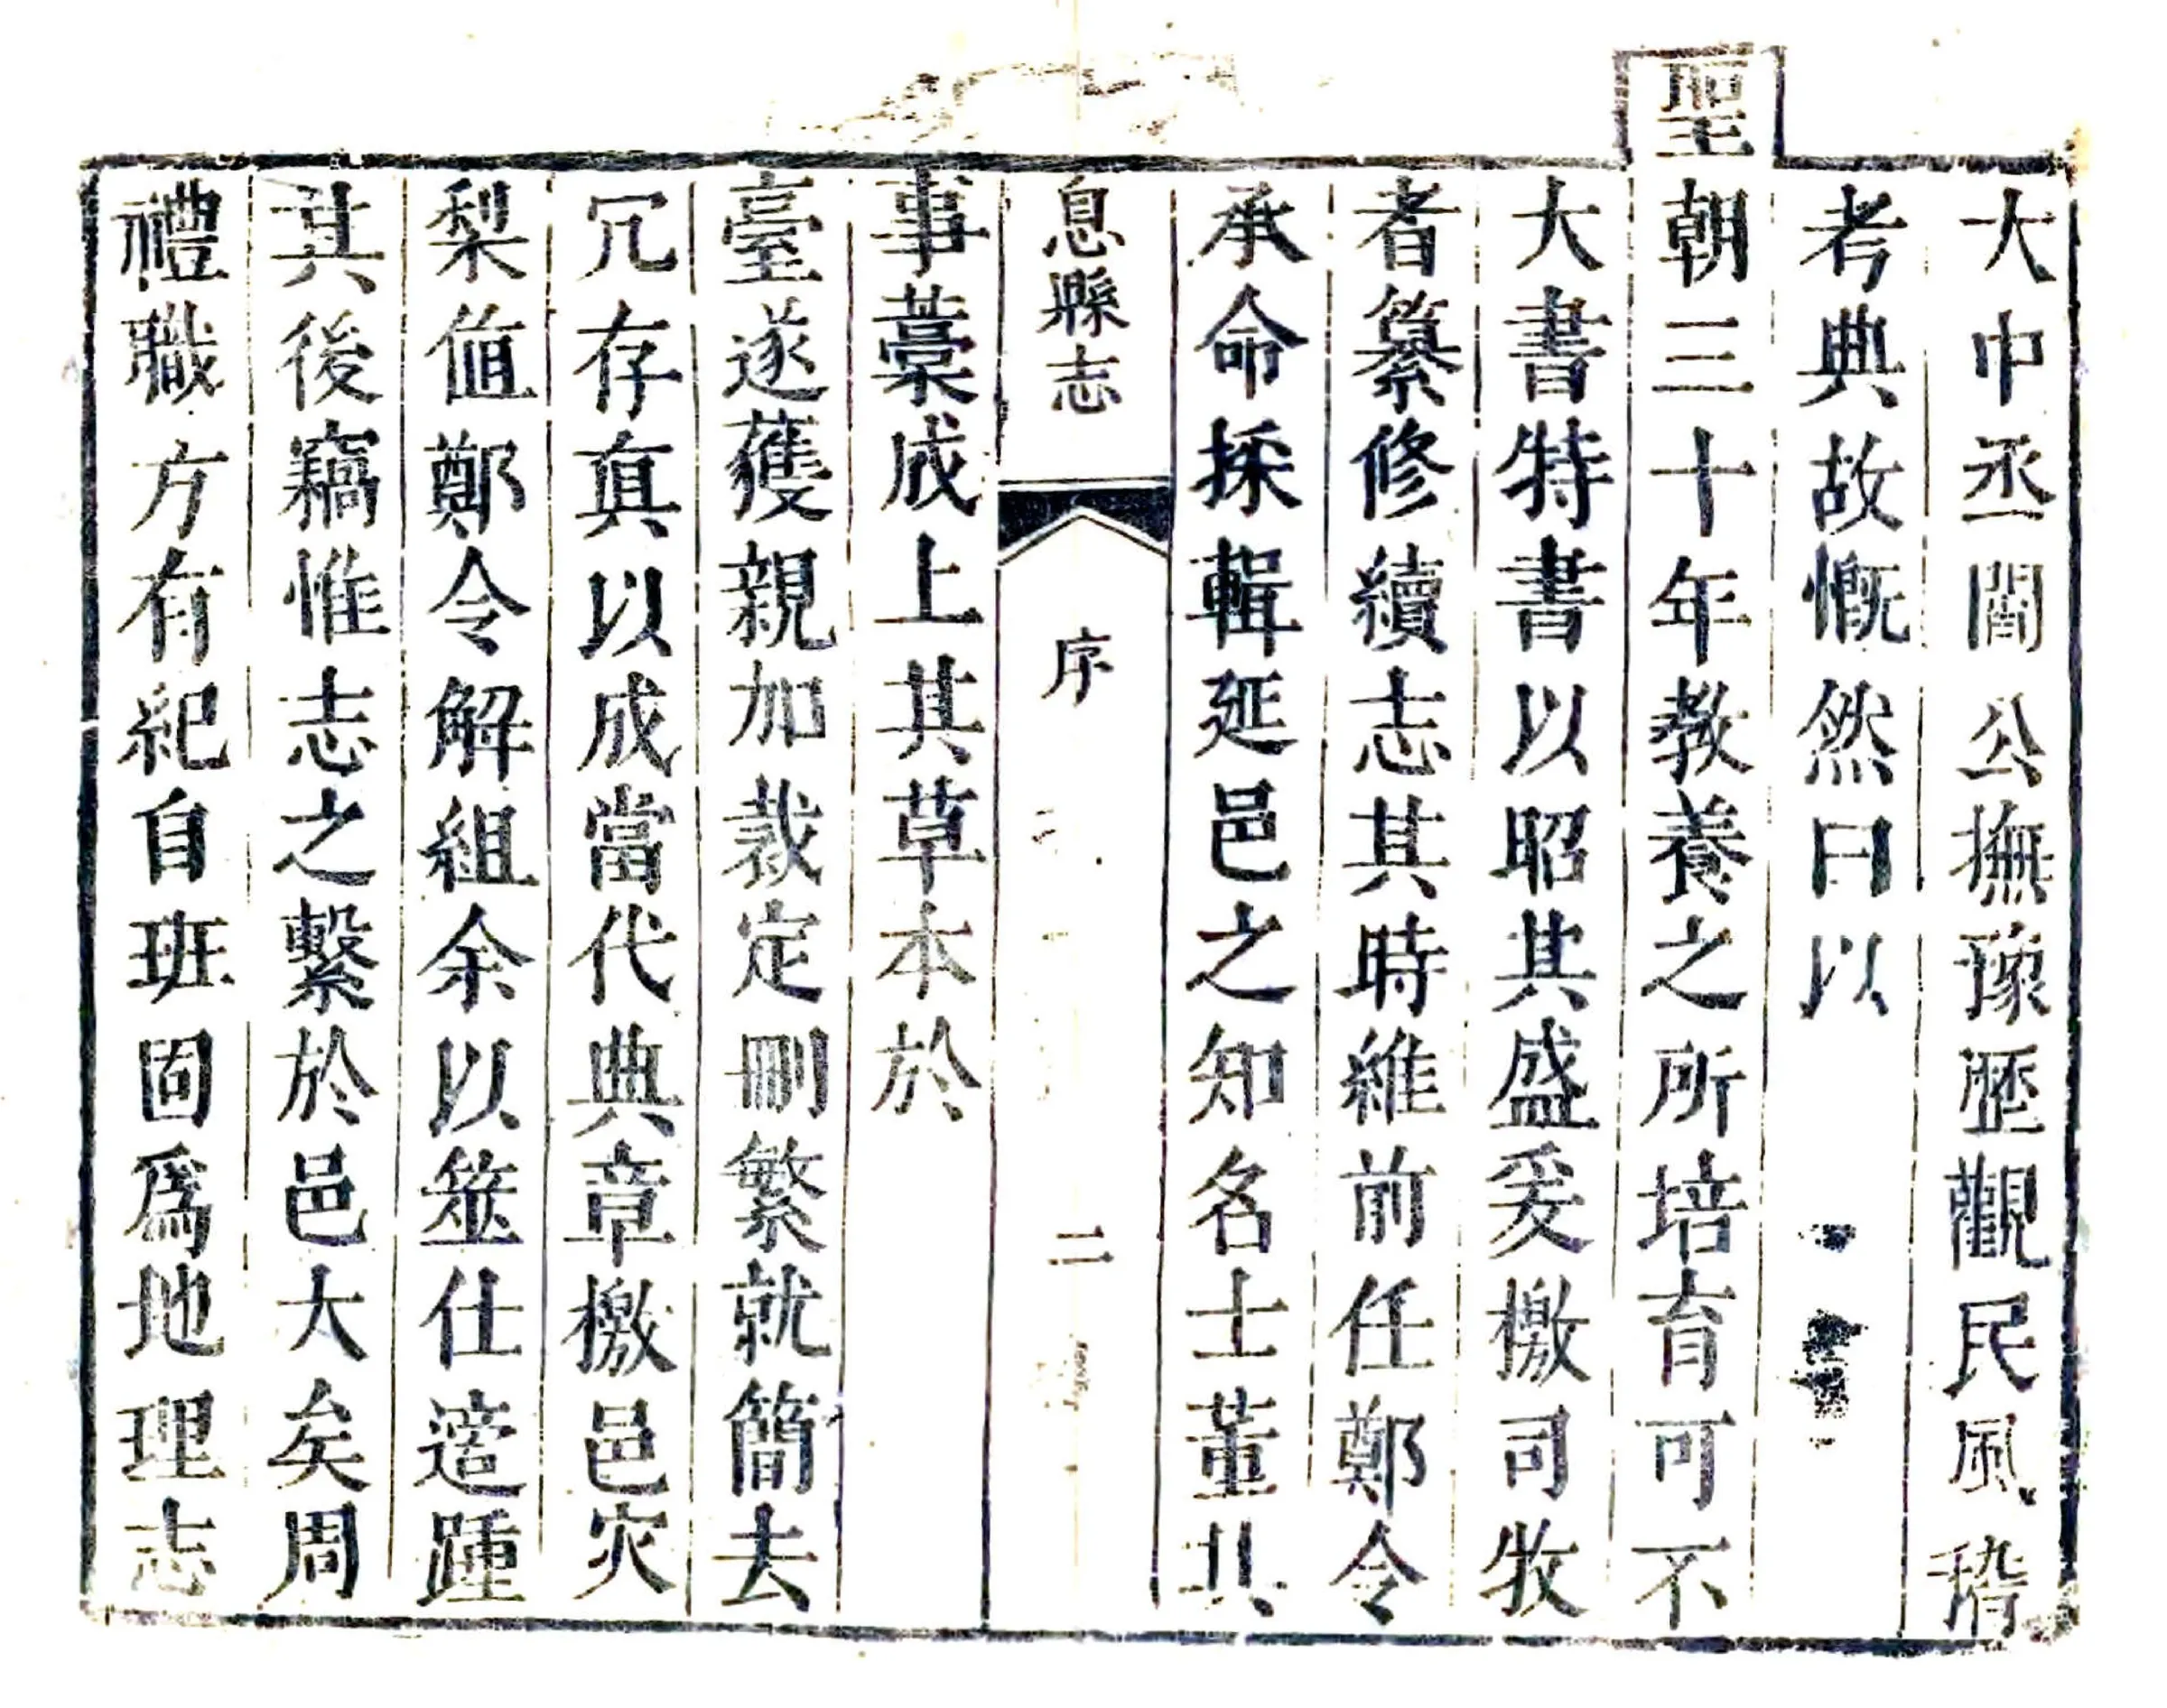 大中丞閻公撫豫歷觀民風稽
考典故慨然曰以
聖朝三十年教養之所培育可不
大書特書以昭其盛爰檄司牧
者纂修續志其時維前任鄭令
承命採輯延邑之知名士董其
息縣志 序 二
事藁成上其草本於
臺遂獲親加裁定刪繁就簡去
冗存真以成當代典章檄邑灾
梨値鄭令解組余以筮仕遝踵
其後竊惟志之繫於邑大矣周
禮職方有紀自班固爲地理志